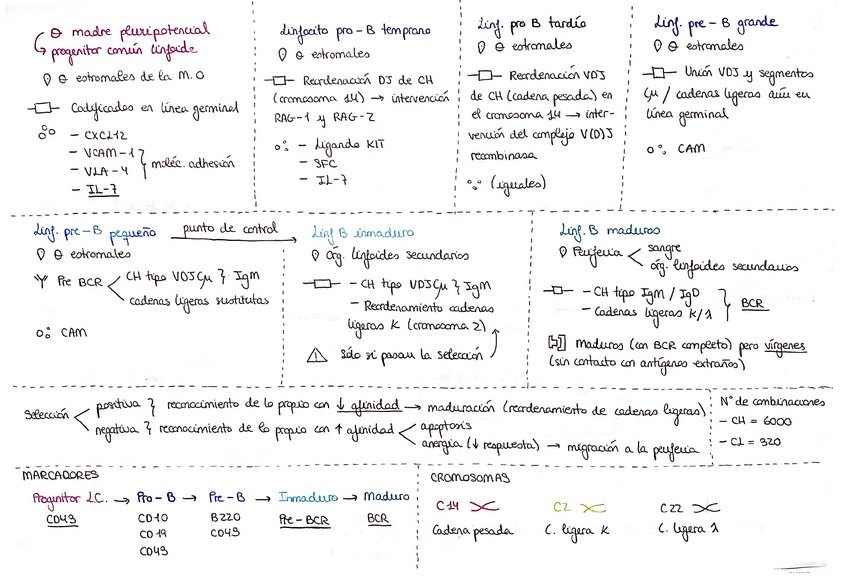 ɵ madre pluripotencial
progenitor común linfoide
ɵ estromales de la M.O
Codificados en línea germinal
- CXCL12
- VCAM-1
- VLA-4
} moléc. adhesión
- IL-7
Linfocito pro-B temprano
ɵ estromales
Reordenación DJ de CH
(cromosoma 14) → intervención
RAG-1 y RAG-2
- Ligando KIT
- SFC
- IL-7
Linf. pro B tardío
ɵ estromales
Reordenación VDJ
de CH (cadena pesada) en
el cromosoma 14 → inter-
vención del complejo V(D)J
recombinasa
(iguales)
Linf. pre-B grande
ɵ estromales
Unión VDJ y segmentos
Cμ / cadenas ligeras aún en
línea germinal
CAM
Linf. pre-B pequeño
punto de control
ɵ estromales
Pre BCR
CH tipo VDJCμ } IgM
cadenas ligeras sustitutas
CAM
Linf B inmaduro
Órg. linfoides secundarios
- CH tipo VDJCμ } IgM
- Reordenamiento cadenas
ligeras K (cromosoma 2)
Sólo si pasan la selección
Linf. B maduros
Periferia
sangre
órg. linfoides secundarios
- CH tipo IgM / IgD
- Cadenas ligeras K/λ
} BCR
maduros (con BCR completo) pero vírgenes
(sin contacto con antígenos extraños)
Selección
positiva } reconocimiento de lo propio con ↓ afinidad → maduración (reordenamiento de cadenas ligeras)
negativa } reconocimiento de lo propio con ↑ afinidad
apoptosis
anergia (↓ respuesta) → migración a la periferia
Nº de combinaciones
- CH = 6000
- CL = 320
MARCADORES
Progenitor L.C. → Pro-B → Pre-B → Inmaduro → Maduro
CD43
CD10
CD19
CD43
B220
CD43
Pre-BCR
BCR
CROMOSOMAS
C14
Cadena pesada
C2
C. ligera K
C22
C. ligera λ